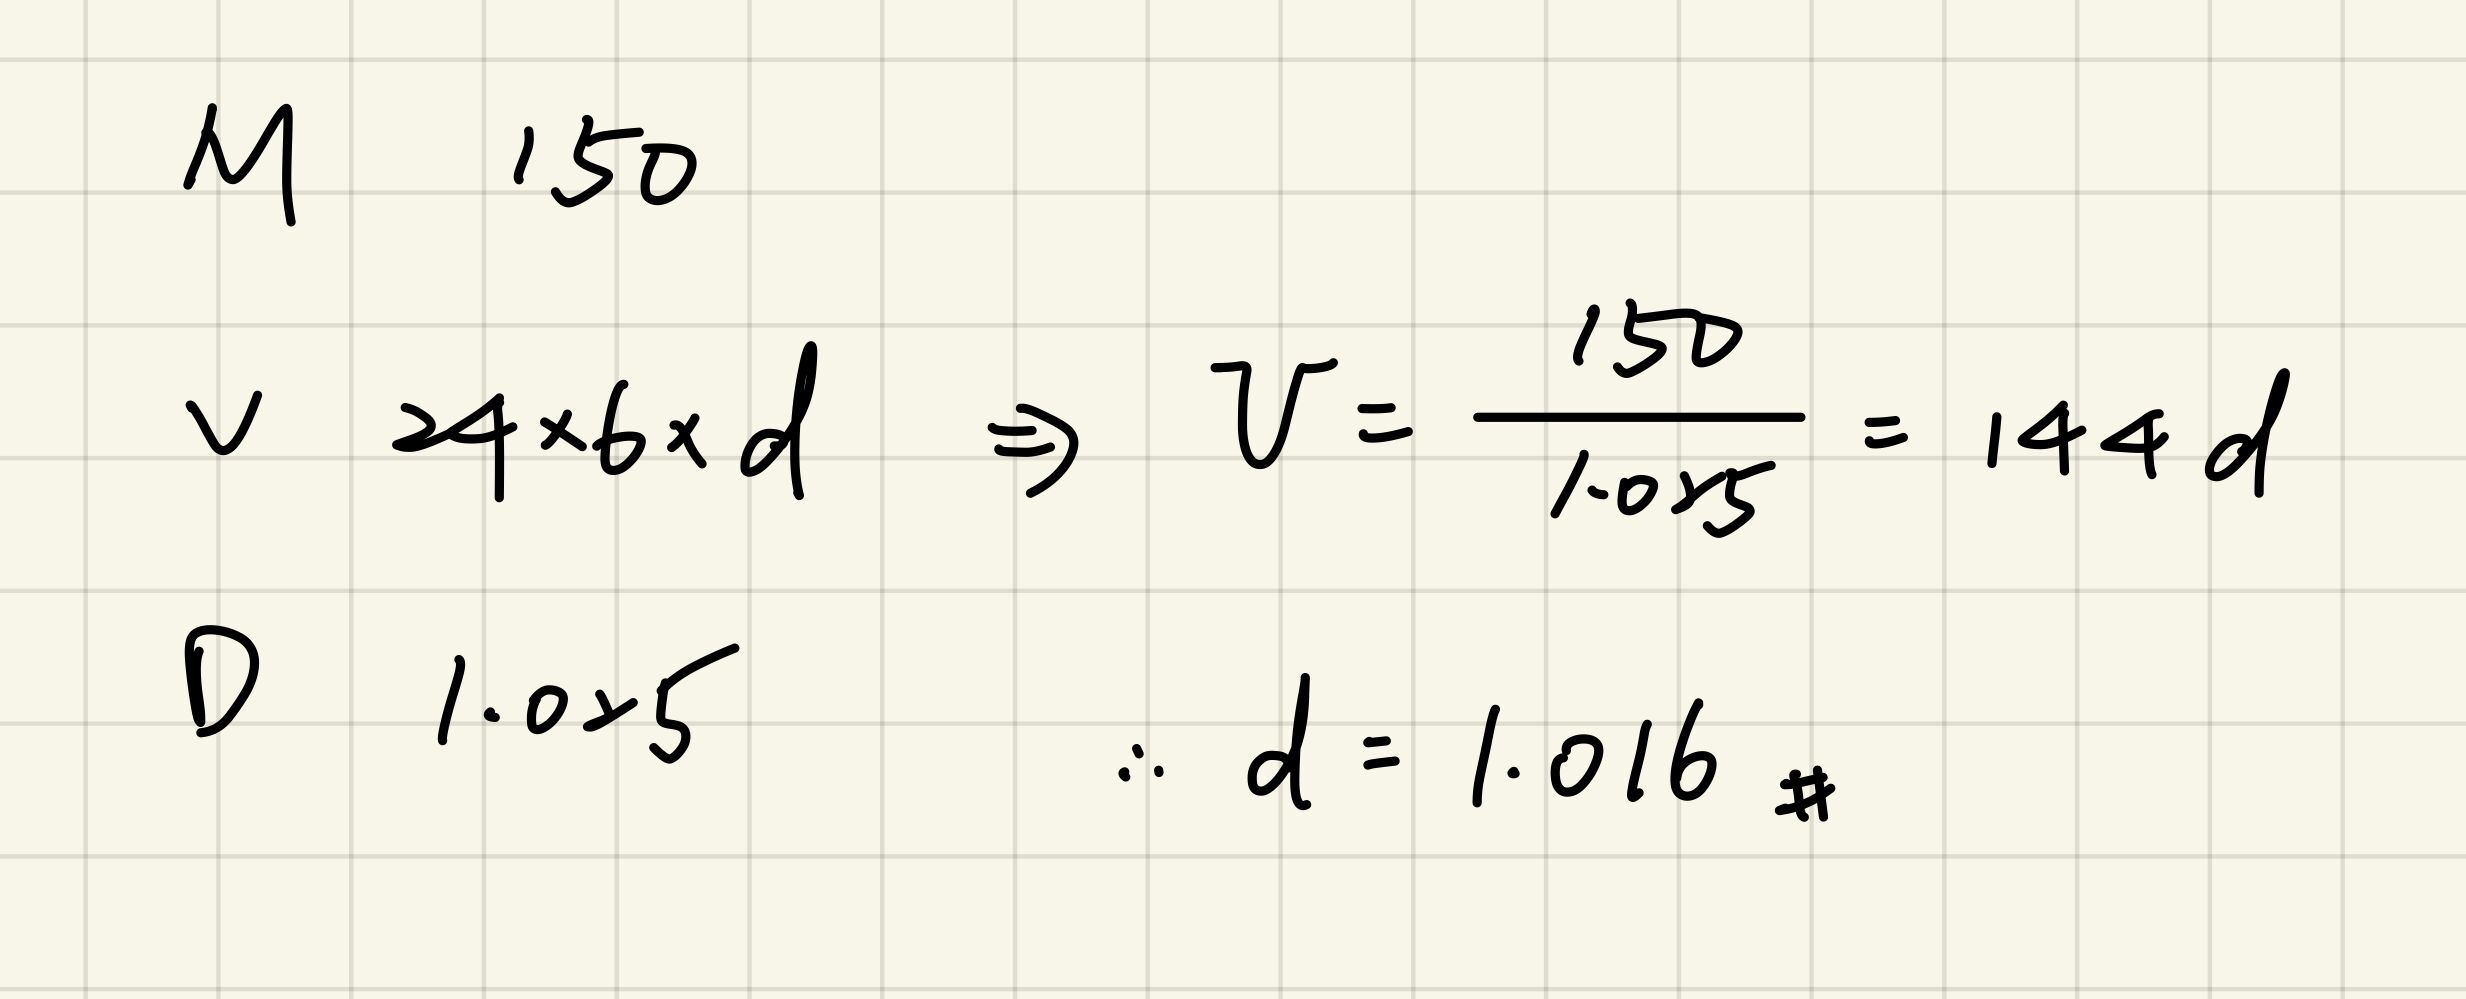 M 150
V 24×6×d ⇒ V = 150/1.025 = 144 d
D 1.025
∴ d = 1.016 #